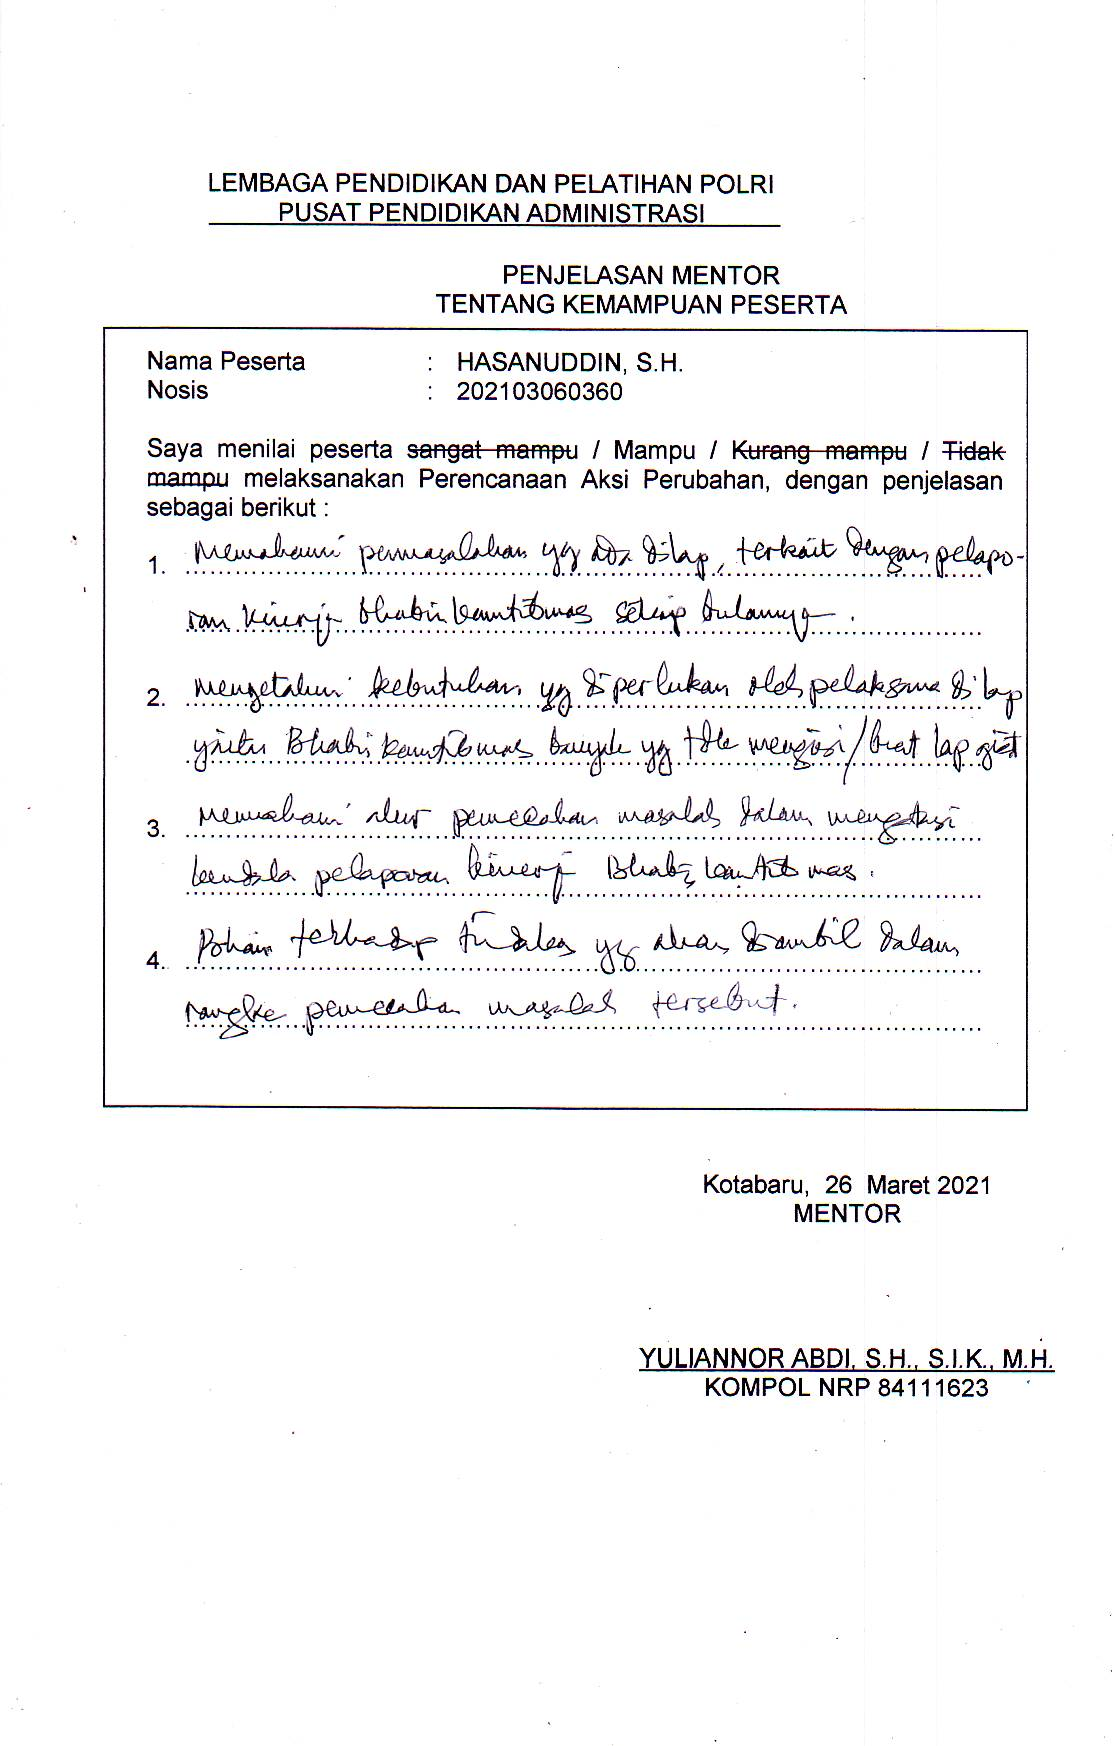 LEMBAGA PENDIDIKAN DAN PELATIHAN POLRI
PUSAT PENDIDIKAN ADMINISTRASI
PENJELASAN MENTOR
TENTANG KEMAMPUAN PESERTA
Nama Peserta : HASANUDDIN, S.H.
Nosis : 202103060360
Saya menilai peserta sangat mampu / Mampu / Kurang mampu / Tidak
mampu melaksanakan Perencanaan Aksi Perubahan, dengan penjelasan
sebagai berikut :
1. Memahami permasalahan yg ada dilap, terkait dengan pelapo-
ran kinerja bhabinkamtibmas setiap bulannya.
2. Mengetahui kebutuhan yg diperlukan oleh pelaksana dilap
yaitu Bhabinkamtibmas banyak yg tdk mengisi/buat lap giat
3. Memahami alur pemecahan masalah dalam mengatasi
kendala pelaporan kinerja Bhabinkamtibmas.
4. Paham terhadap tindakan yg akan diambil dalam
rangka pemecahan masalah tersebut.
Kotabaru, 26 Maret 2021
MENTOR
YULIANNOR ABDI, S.H., S.I.K., M.H.
KOMPOL NRP 84111623